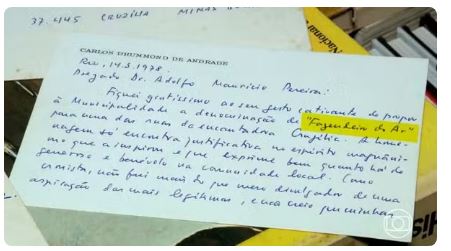 37.445 CRUZÍLIA MINAS
Nacional
CARLOS DRUMMOND DE ANDRADE
Rio, 14.3.1978.
Prezado Dr. Adolfo Mauricio Pereira:
Fiquei gratíssimo ao seu gesto cativante de propor
à Municipalidade a denominação de "Fazendeiro do Ar"
para uma das ruas da encantadora Cruzília. A home-
nagem só encontra justificativa no espírito magnâni-
mo que a inspirou e que exprime bem quanto há de
generoso e benévolo na comunidade local. Como
cronista, não fui mais do que mero divulgador de uma
aspiração das mais legítimas, e